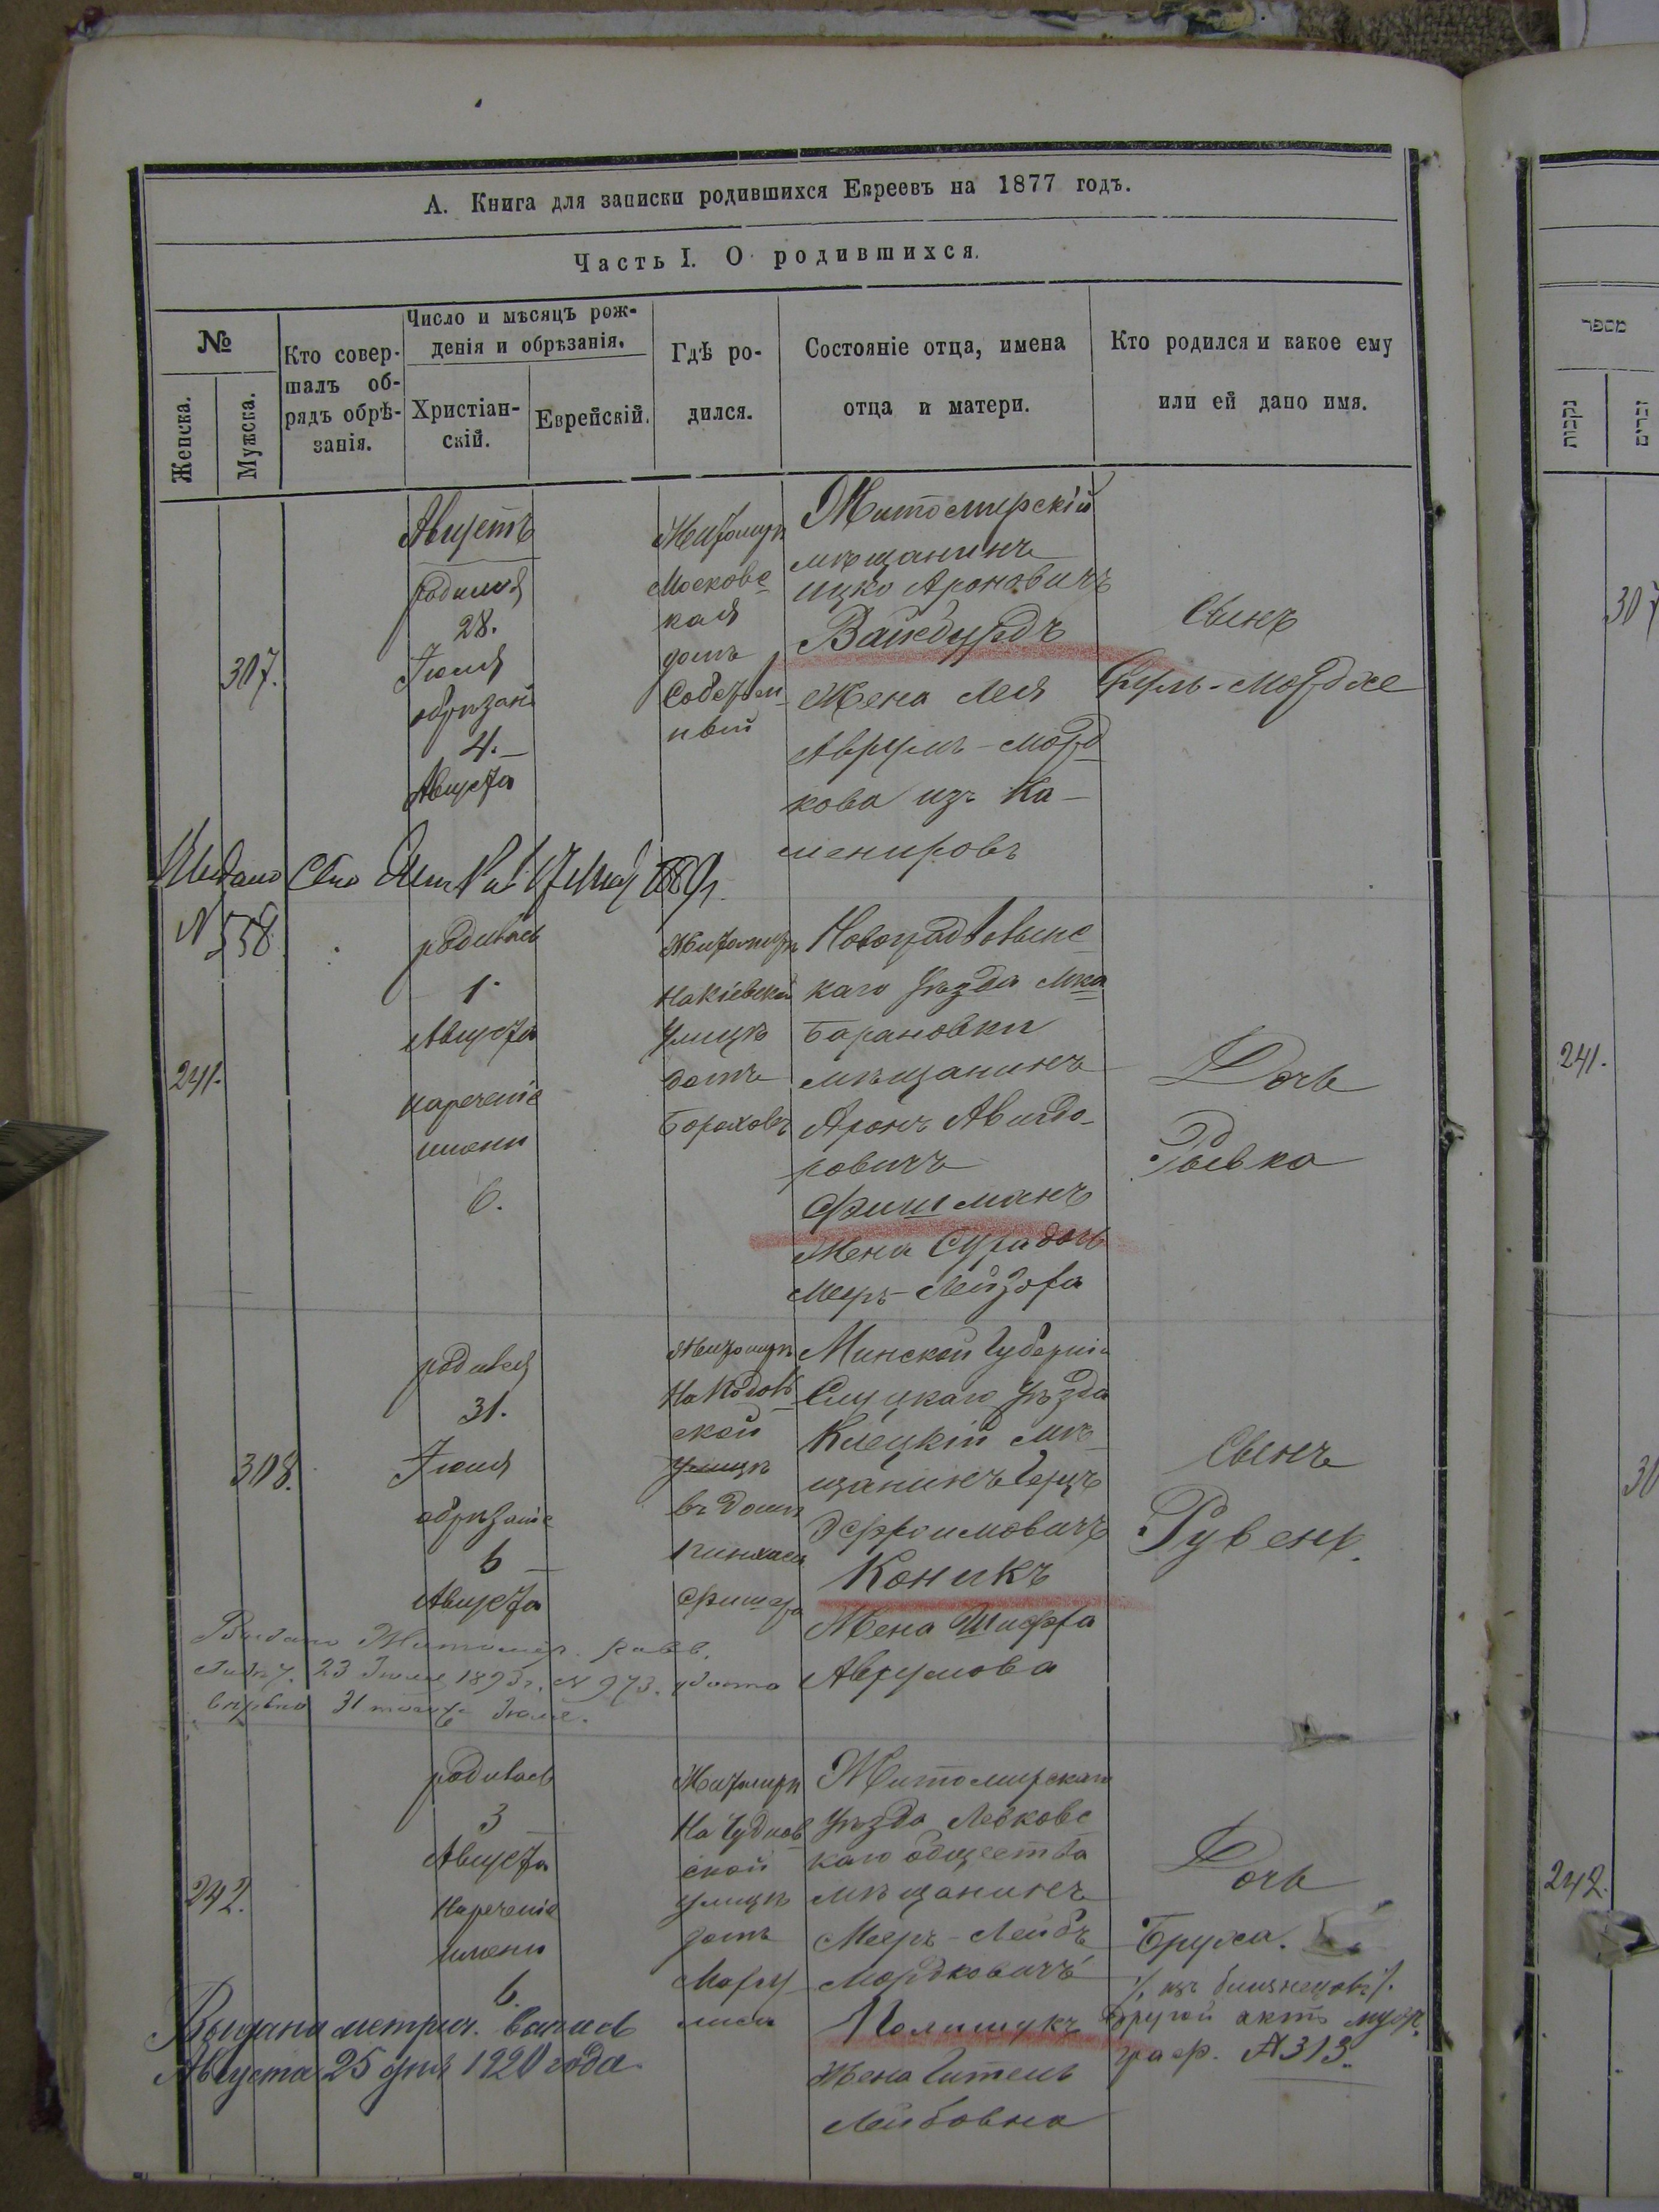 А. Книга для записки родившихся Евреевъ на 1877 годъ.
Часть I. О родившихся.
№
Женска.
Мужска.
Кто совер-
шалъ об-
рядъ обрѣ-
занія.
Число и мѣсяцъ рож-
денія и обрѣзанія.
Христіан-
скій.
Еврейскій.
Гдѣ ро-
дился.
Состояніе отца, имена
отца и матери.
Кто родился и какое ему
или ей дано имя.
307.
Августъ
родился
28.
Іюля
обрѣзанъ
4.
Августа
Житомиръ
Московс
кая
домъ
Собствен
ный
Житомирскій
мѣщанинъ
Ицко Ароновичъ
Вайсбурдъ
Жена Лея
Аврумъ-Морд
кова изъ Ка-
менировъ
Сынъ
Сруль-Мордхе
Выдано
N 558
241.
родилась
1.
Августа
нареченіе
имени
6.
Житомиръ
На Кіевской
улицѣ
домъ
Бороховъ
Новоградволынс
каго уѣзда Мка
Барановки
мѣщанинъ
Аронъ Авигдо-
ровичъ
Фишманъ
Жена Сура дочь
Меръ-Лейзора
Дочь
Рывка
308.
родился
31.
Іюля
обрѣзаніе
6
Августа
Житомиръ
На Подоль
ской
улицѣ
въ домѣ
Пинхаса
Фишера
Минской Губерніи
Слуцкаго уѣзда
Клецкій мѣ-
щанинъ Герцъ
Эфроимовичъ
Коникъ
Жена Шифра
Аврумова
Сынъ
Рувенъ.
Выдано Житомир. равв.
23 Іюля 1893 г. N 973.
31 того же Іюля.
242.
родилась
3
Августа
Нареченіе
имени
6.
Житомиръ
На Чуднов
ской
улицѣ
домъ
Житомирскаго
уѣзда Левковс
каго общества
мѣщанинъ
Мееръ-Лейбъ
Мордковичъ
Полищукъ
Жена Гитель
Лейбовна
Дочь
Бруха.
/. изъ близнецовъ /.
Другой актъ муж.
граф. № 313.
Выдана метрич. выпись
Августа 25 дня 1920 года.
מספר
נקבות
זכרים
307
241.
30
242.